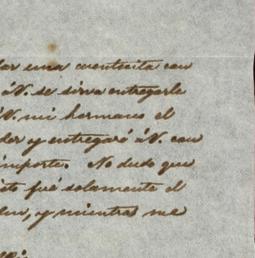 dar una cuentecita con
á V. se sirva entregarle
á V. mi hermano el
der y entregaré á V. con
importe. No dudo que
ito fué solamente el
, y mientras me